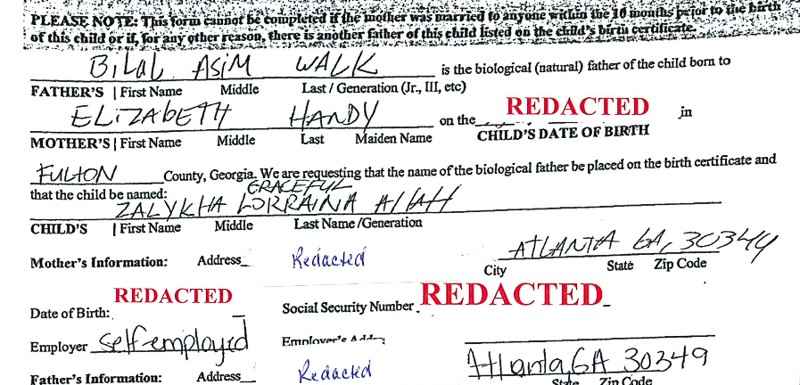 PLEASE NOTE: This form cannot be completed if the mother was married to anyone within the 10 months prior to the birth
of this child or if, for any other reason, there is another father of this child listed on the child's birth certificate.
BILAL ASIM WALK is the biological (natural) father of the child born to
FATHER'S | First Name Middle Last / Generation (Jr., III, etc)
ELIZABETH HANDY on the REDACTED in
MOTHER'S | First Name Middle Last Maiden Name CHILD'S DATE OF BIRTH
FULTON County, Georgia. We are requesting that the name of the biological father be placed on the birth certificate and
that the child be named: GRACEFUL
ZALYKHA LORRAINA Allah
CHILD'S | First Name Middle Last Name /Generation
Mother's Information: Address Redacted ATLANTA GA, 30349
City State Zip Code
Date of Birth: REDACTED Social Security Number REDACTED
Employer Self employed Employer's
Father's Information: Address Redacted Atlanta, GA 30349
State Zip Code